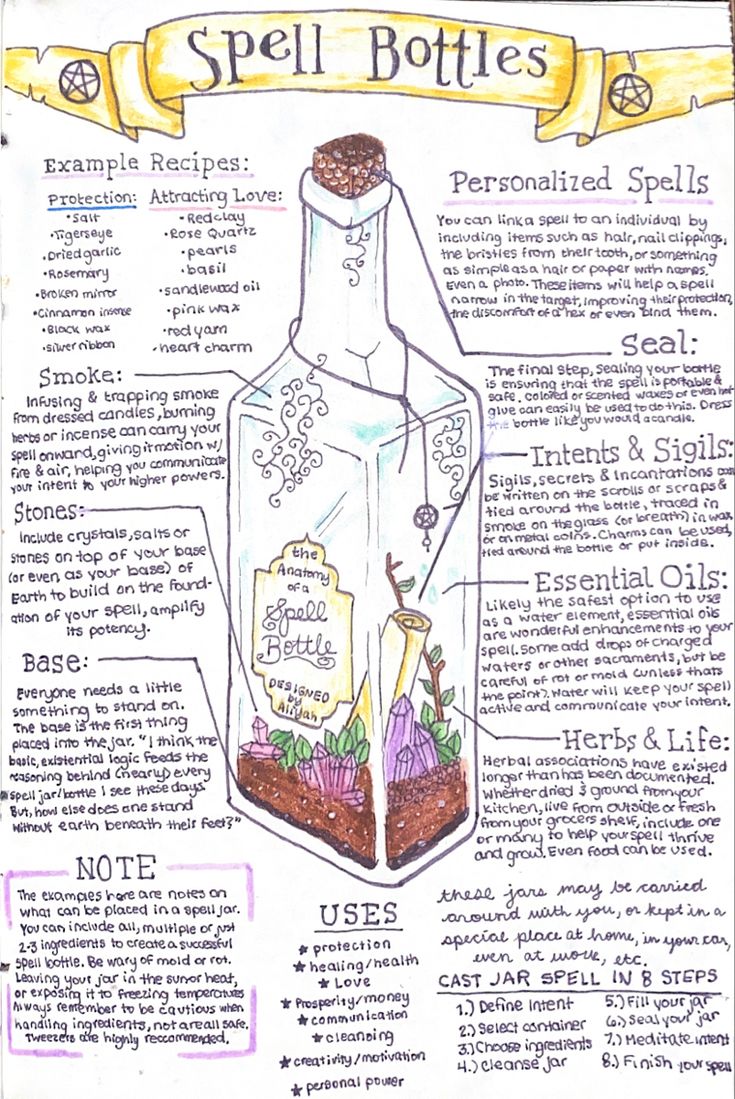 Spell Bottles
Example Recipes:
Protection:
•Salt
•Tigerseye
•Dried garlic
•Rosemary
•Broken mirror
•Cinnamon insense
•Black wax
•silver ribbon
Attracting Love:
•Red clay
•Rose Quartz
•pearls
•basil
•sandlewood oil
•pink wax
•red yarn
•heart charm
Smoke:
Infusing & trapping smoke
from dressed candles, burning
herbs or incense can carry your
spell onward, giving it motion w/
fire & air, helping you communicate
your intent to your higher powers.
Stones:
Include crystals, salts or
stones on top of your base
(or even as your base) of
Earth to build on the found-
ation of your spell, amplify
its potency.
Base:
Everyone needs a little
something to stand on.
The base is the first thing
placed into the jar. "I think the
basic, existential logic feeds the
reasoning behind (nearly) every
spell jar/bottle I see these days.
But, how else does one stand
without earth beneath their feet?"
the
Anatomy
of a
Spell
Bottle
DESIGNED
by
Aliyah
Personalized Spells
You can link a spell to an individual by
including items such as hair, nail clippings,
the bristles from their tooth, or something
as simple as a hair or paper with names.
Even a photo. These items will help a spell
narrow in the target, improving their protection,
the discomfort of a hex or even bind them.
Seal:
The final step, sealing your bottle
is ensuring that the spell is portable &
safe. Colored or scented waxes or even hot
glue can easily be used to do this. Dress
the bottle like you would a candle.
Intents & Sigils:
Sigils, secrets & Incantations can
be written on the scrolls or scraps &
tied around the bottle, traced in
smoke on the glass (or breath) in wax
or on metal coins. Charms can be used,
tied around the bottle or put inside.
Essential Oils:
Likely the safest option to use
as a water element, essential oils
are wonderful enhancements to your
spell. Some add drops of charged
waters or other sacraments, but be
careful of rot or mold (unless thats
the point). Water will keep your spell
active and communicate your intent.
Herbs & Life:
Herbal associations have existed
longer than has been documented.
Whether dried & ground from your
kitchen, live from outside or fresh
from your grocers shelf, include one
or many to help your spell thrive
and grow. Even food can be used.
NOTE
The examples here are notes on
what can be placed in a spell jar.
You can include all, multiple or just
2-3 ingredients to create a successful
spell bottle. Be wary of mold or rot.
Leaving your jar in the sun or heat,
or exposing it to freezing temperatures
Always remember to be cautious when
handling ingredients, not are all safe.
Tweezers are highly reccommended.
USES
★ protection
★ healing/health
★ Love
★ Prosperity/money
★ communication
★ cleansing
★ creativity/motivation
★ personal power
these jars may be carried
around with you, or kept in a
special place at home, in your car,
even at work, etc.
CAST JAR SPELL IN 8 STEPS
1.) Define Intent
2.) Select container
3.) Choose ingredients
4.) Cleanse jar
5.) Fill your jar
6.) Seal your jar
7.) Meditate intent
8.) Finish your spell